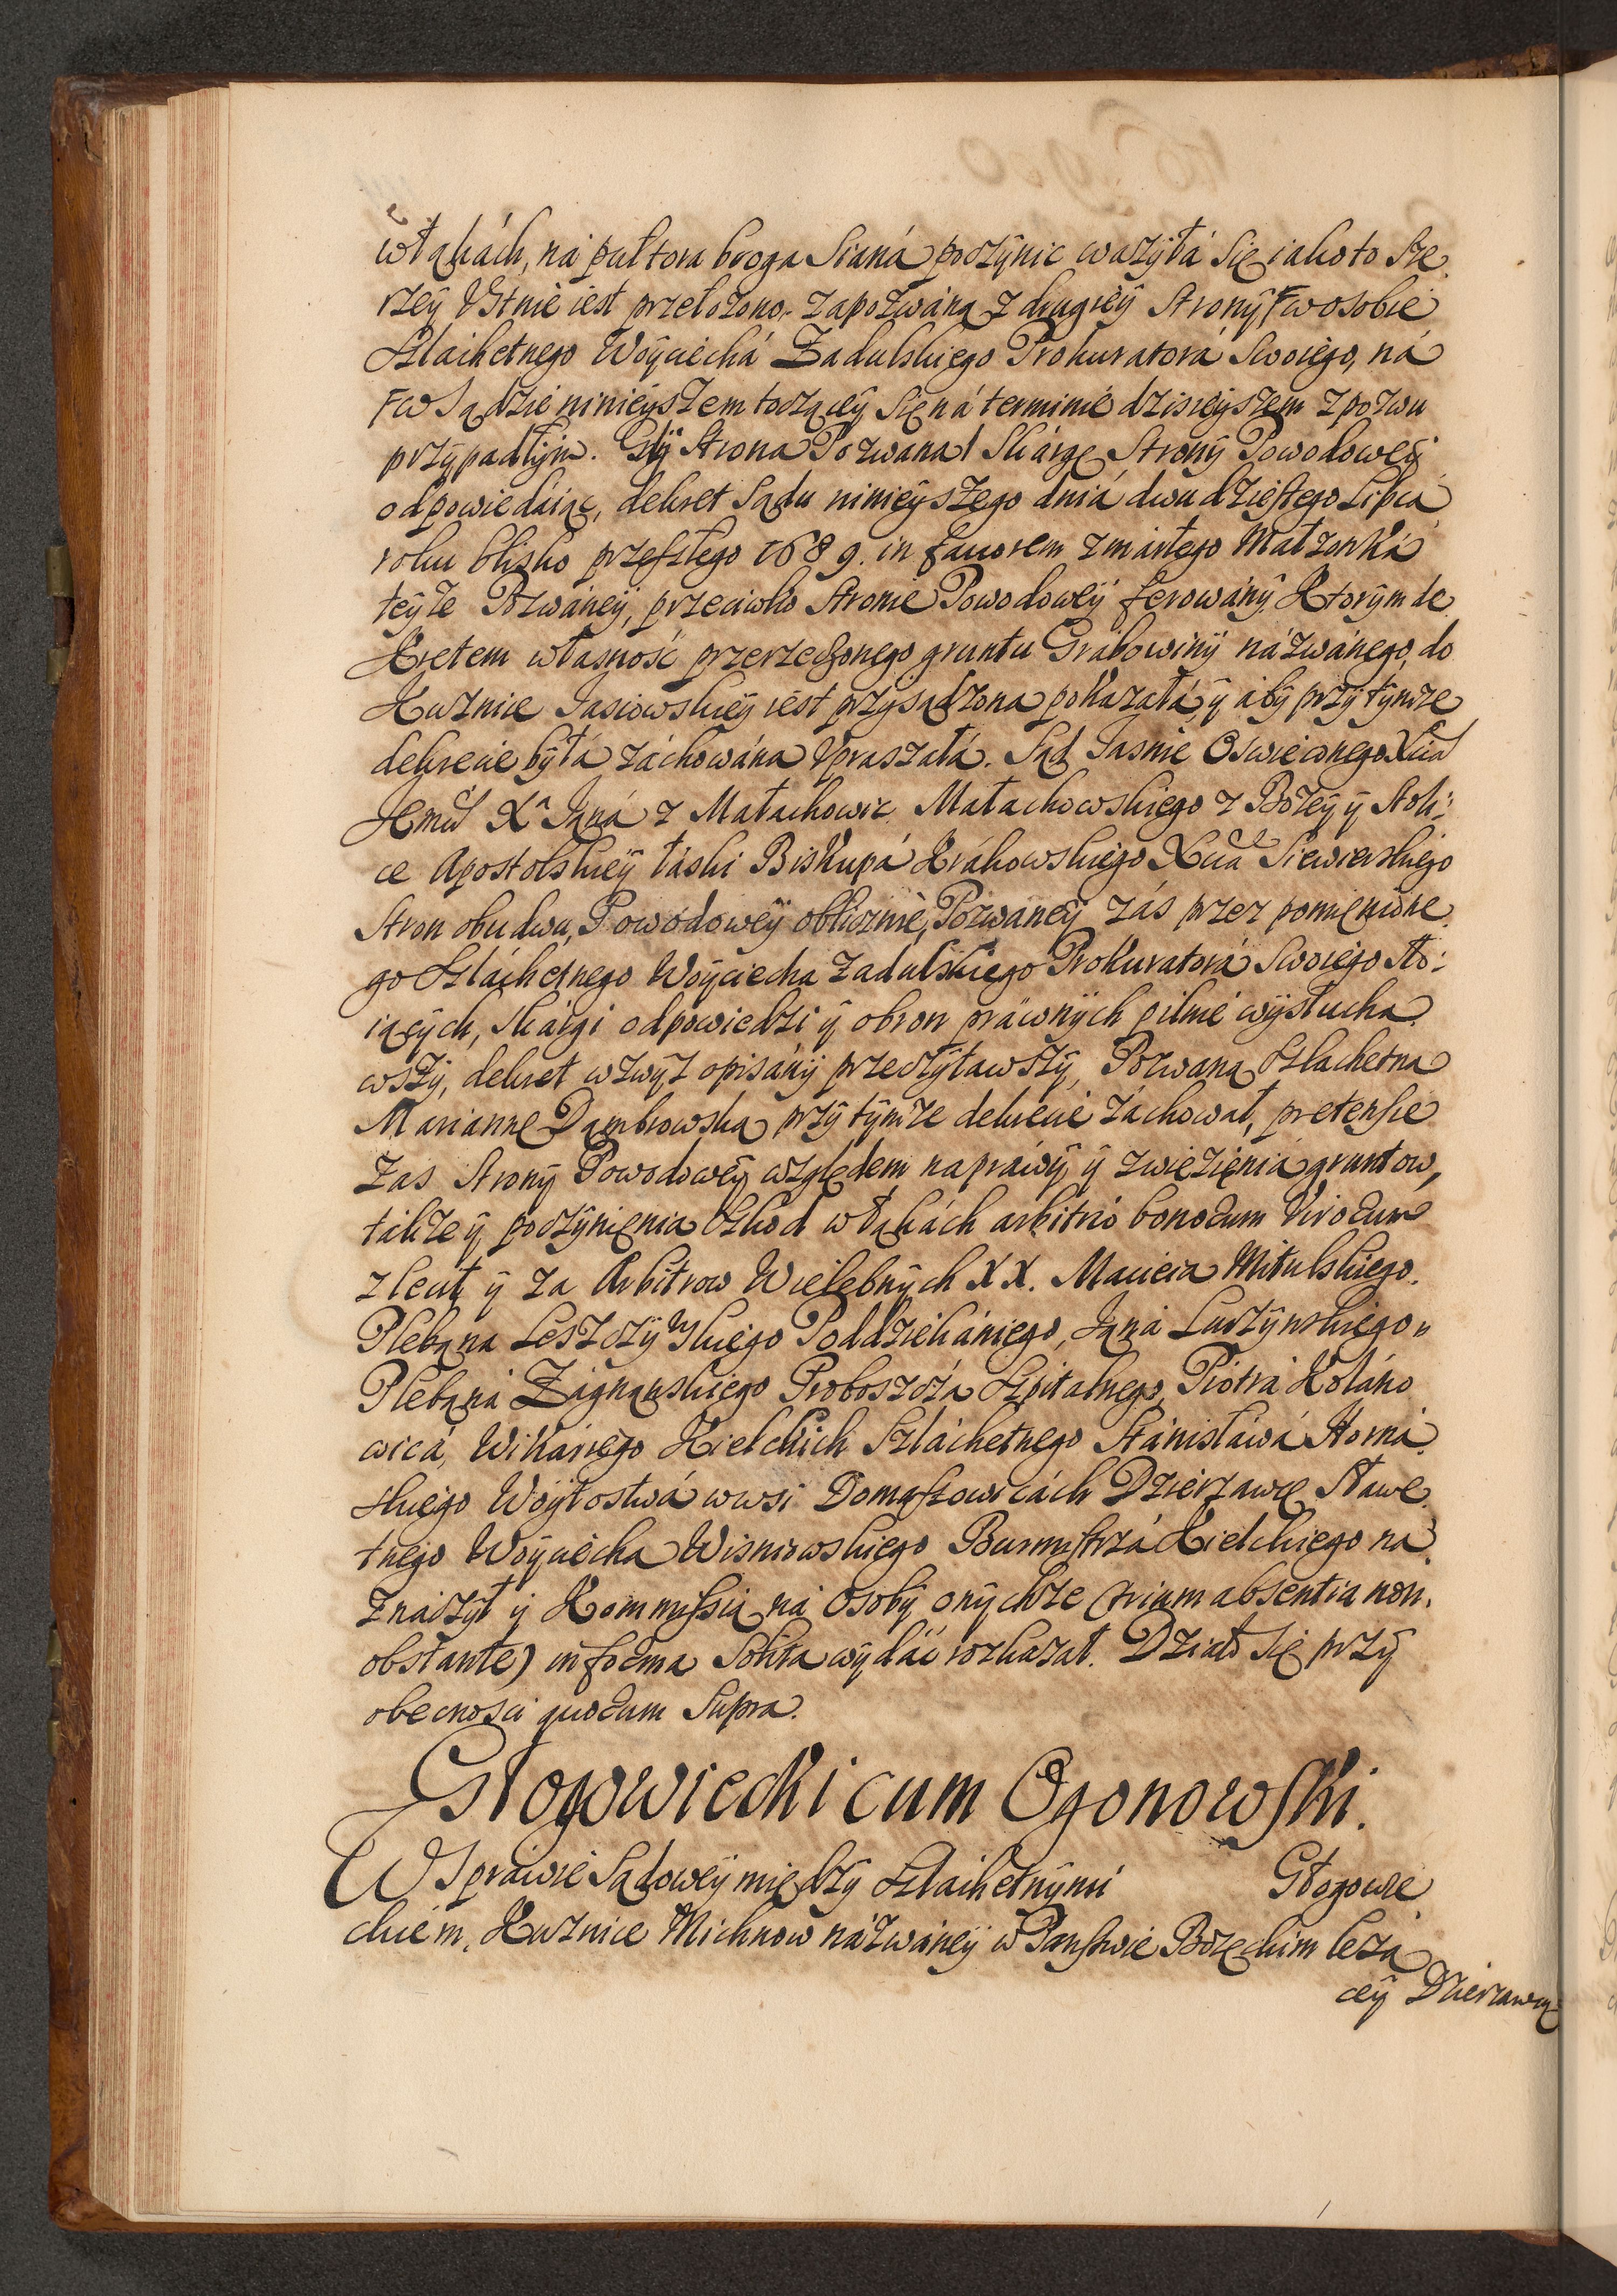 w Łąkách, ná pułtora broga Sianá poczÿnic ważÿłá Się iako to Sze
rzeÿ Vstnie iest przełożono. Zapozwána z drugieÿ Stronÿ, w osobie
Szlachetnego Woÿciechá Zadulskiego Prokuratorá Swoiego, ná
w Sądzie ninieÿszem toczącÿ Się ná terminie dzisieÿszem z pozwu
przÿpadłÿm. Gdÿ Strona Pozwana Skárgę Stronÿ Powodoweÿ
odpowiedáiąc, dekret Sądu ninieÿszego dniá dwudziestego Lipcá
roku blisko przeszłego 1689. in fauorem zmárłego Małzonká
teÿże Pozwáneÿ, przeciwko Stronie Powodoweÿ ferowánÿ, Ktorÿm de
Kretem własność przerzeczonego gruntu Grábowinÿ názwánego, do
Kuznice Jasiowskieÿ iest przÿsądzona pokazáłá, ÿ ábÿ przÿ tÿmże
dekrecie bÿłá záchowána Vpraszáłá. Sąd Jasnie Oswieconego Xcia
Jemci X Janá z Małachowic Małachowskiego z Bożeÿ ÿ Stoli:
ce Apostolskieÿ łáski Biskupá Krákowskiego Xcia Siewierskiego
Stron obudwu, Powodoweÿ oblicznie, Pozwáneÿ zás przez pomienione
go Szláchetnego Woÿciecha Zadulskiego Prokuratorá Swoiego Sto:
iącÿch, Skárgi odpowiedzi ÿ obron práwnÿch pilnie wÿsłucha
wszÿ, dekret wzwÿz opisánÿ przeczÿtawszÿ, Pozwaną Szlachetną
Mariannę Dąmbrowską przÿ tÿmże dekrecie záchował, pretensie
zas Stronÿ Powodoweÿ względem napráwÿ ÿ zwiezienia gruntow,
tákże ÿ poczÿnięnia Szkod w Łąkách arbitrio bonorum Virorum
zlecił, ÿ za Arbitrow Wielebnÿch XX. Macieia Mitulskiego
Plebąna Leszczÿnskiego Poddziekániego, Jąná Luszÿnskiego
Plebąná Zágnąnskiego Proboszczá Szpitalnego, Piotrá Koláno
wicá, Wikáriego Kielckich Szláchetnego Stánisławá Horná
skiego Woÿtostwá wwsi Domaszowicách Dzierzawcę Sławe
tnego Woÿciecha Wisniowskiego Burmistrzá Kielckiego na
znaczÿł ÿ Kommissią ná osobÿ onÿchże (trium absentia non
obstante) in forma Solita wÿdáć rozkazał. Działo Się przÿ
obecnosci quorum Supra.
Głogowiecki cum Ogonowski.
W Spráwie Sądoweÿ międzÿ Szlachetnÿmi Głogowie
ckiem, Kuznice Michnow názwáneÿ w Panstwie Bozęckim leżą
ceÿ Dzierzawcą